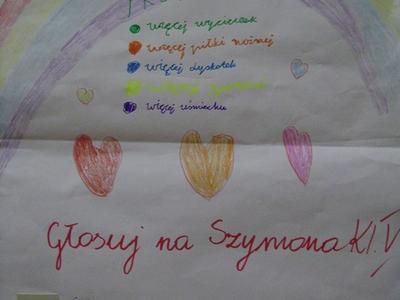 więcej wycieczek
więcej piłki nożnej
więcej dyskotek
więcej
więcej uśmiechu
Głosuj na Szymona Kl. V